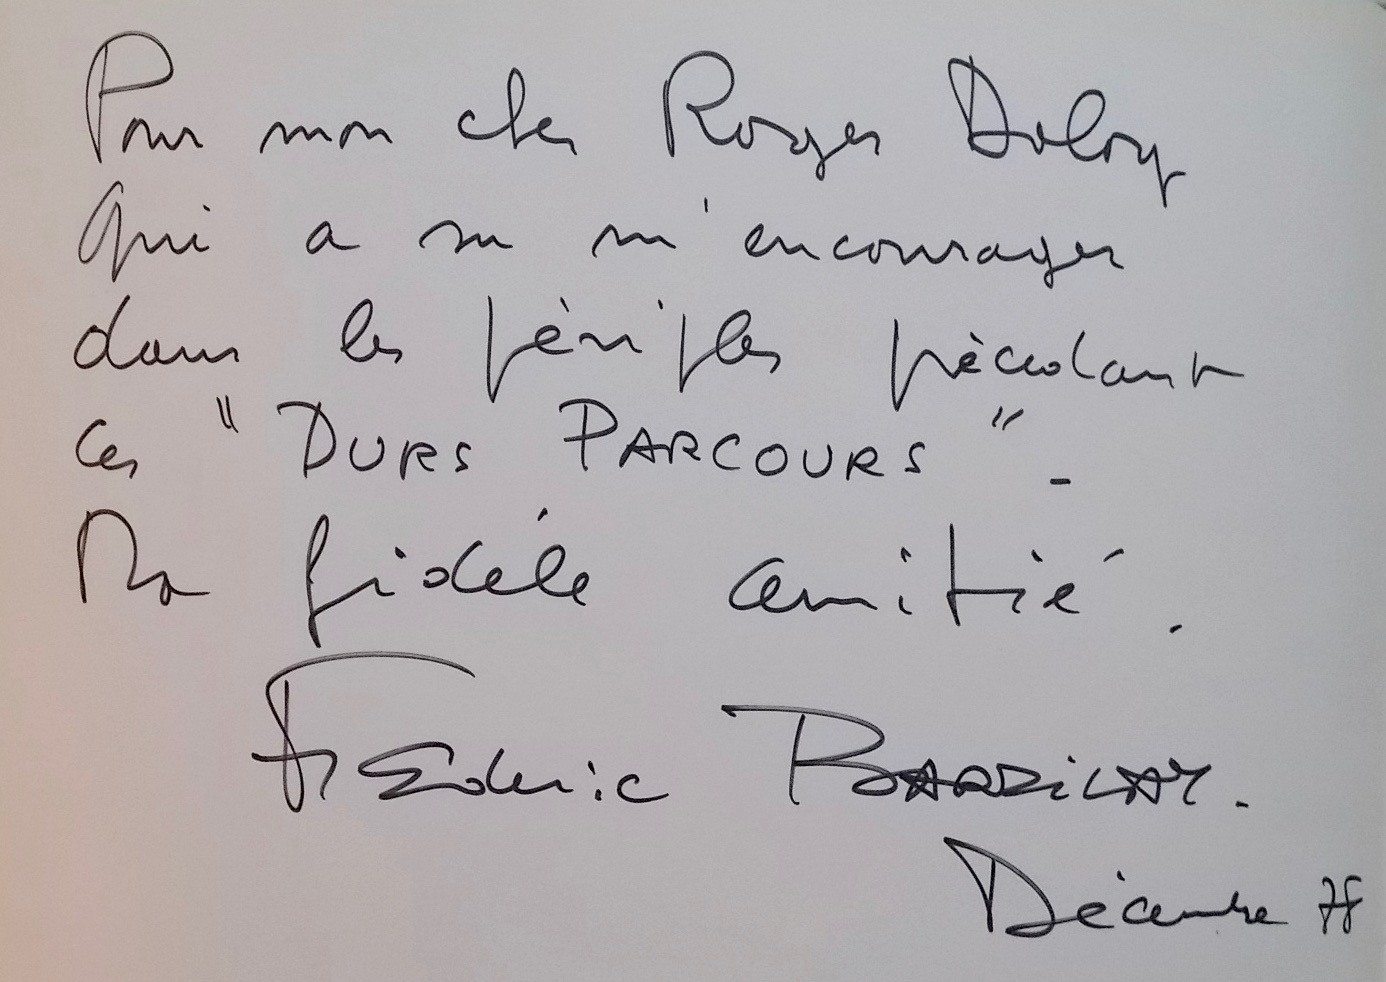 Pour mon cher Roger Deloy
Qui a su m'encourager
dans les périples précédant
ces " DURS PARCOURS " -
Ma fidèle amitié.
Frédéric
Décembre